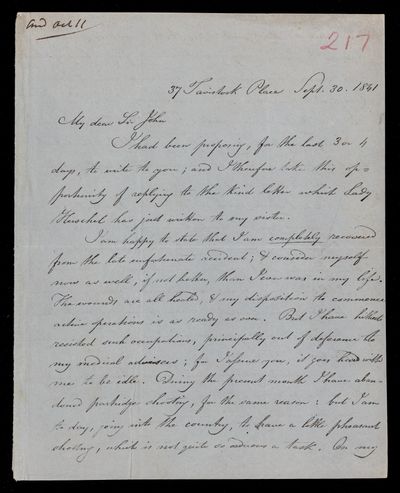 and Oct 11
217
37 Tavistock Place Sept. 30. 1841
My dear Sir John
I had been proposing, for the last 3 or 4
days, to write to you; and I therefore take this op=
portunity of replying to the kind letter which Lady
Herschel has just written to my sister.
I am happy to state that I am completely recovered
from the late unfortunate accident; & consider myself
now as well, if not better, than I ever was in my life.
The wounds are all healed, & my disposition to commence
active operations is as ready as ever. But I have hitherto
resisted such occupations, principally out of deference to
my medical advisers; for I assure you, it goes hard with
me to be idle. During the present month I have aban=
doned partridge shooting, for the same reason: but I am
to day, going into the country, to have a little pheasant
shooting, which is not quite so arduous a task. On my